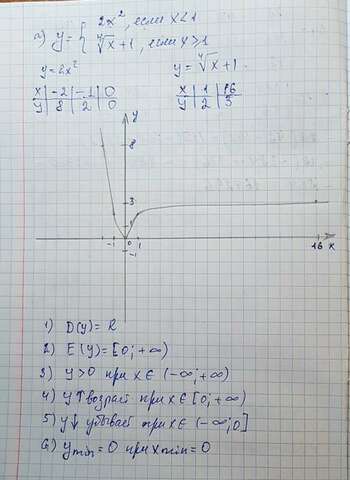 а) y = { 2x², если x<1
∜x + 1, если x>1
y=2x²
y = ∜x + 1.
x | -2 | -1 | 0
y | 8 | 2 | 0
x | 1 | 16
y | 2 | 3
y
8
3
1
-1 0 1 16 x
-1
1) D(y) = R
2) E(y) = [0; +∞)
3) y>0 при x∈ (-∞; +∞)
4) y↑ возраст при x∈ [0; +∞)
5) y↓ убывает при x∈ (-∞; 0]
6) ymin = 0 при xmin = 0